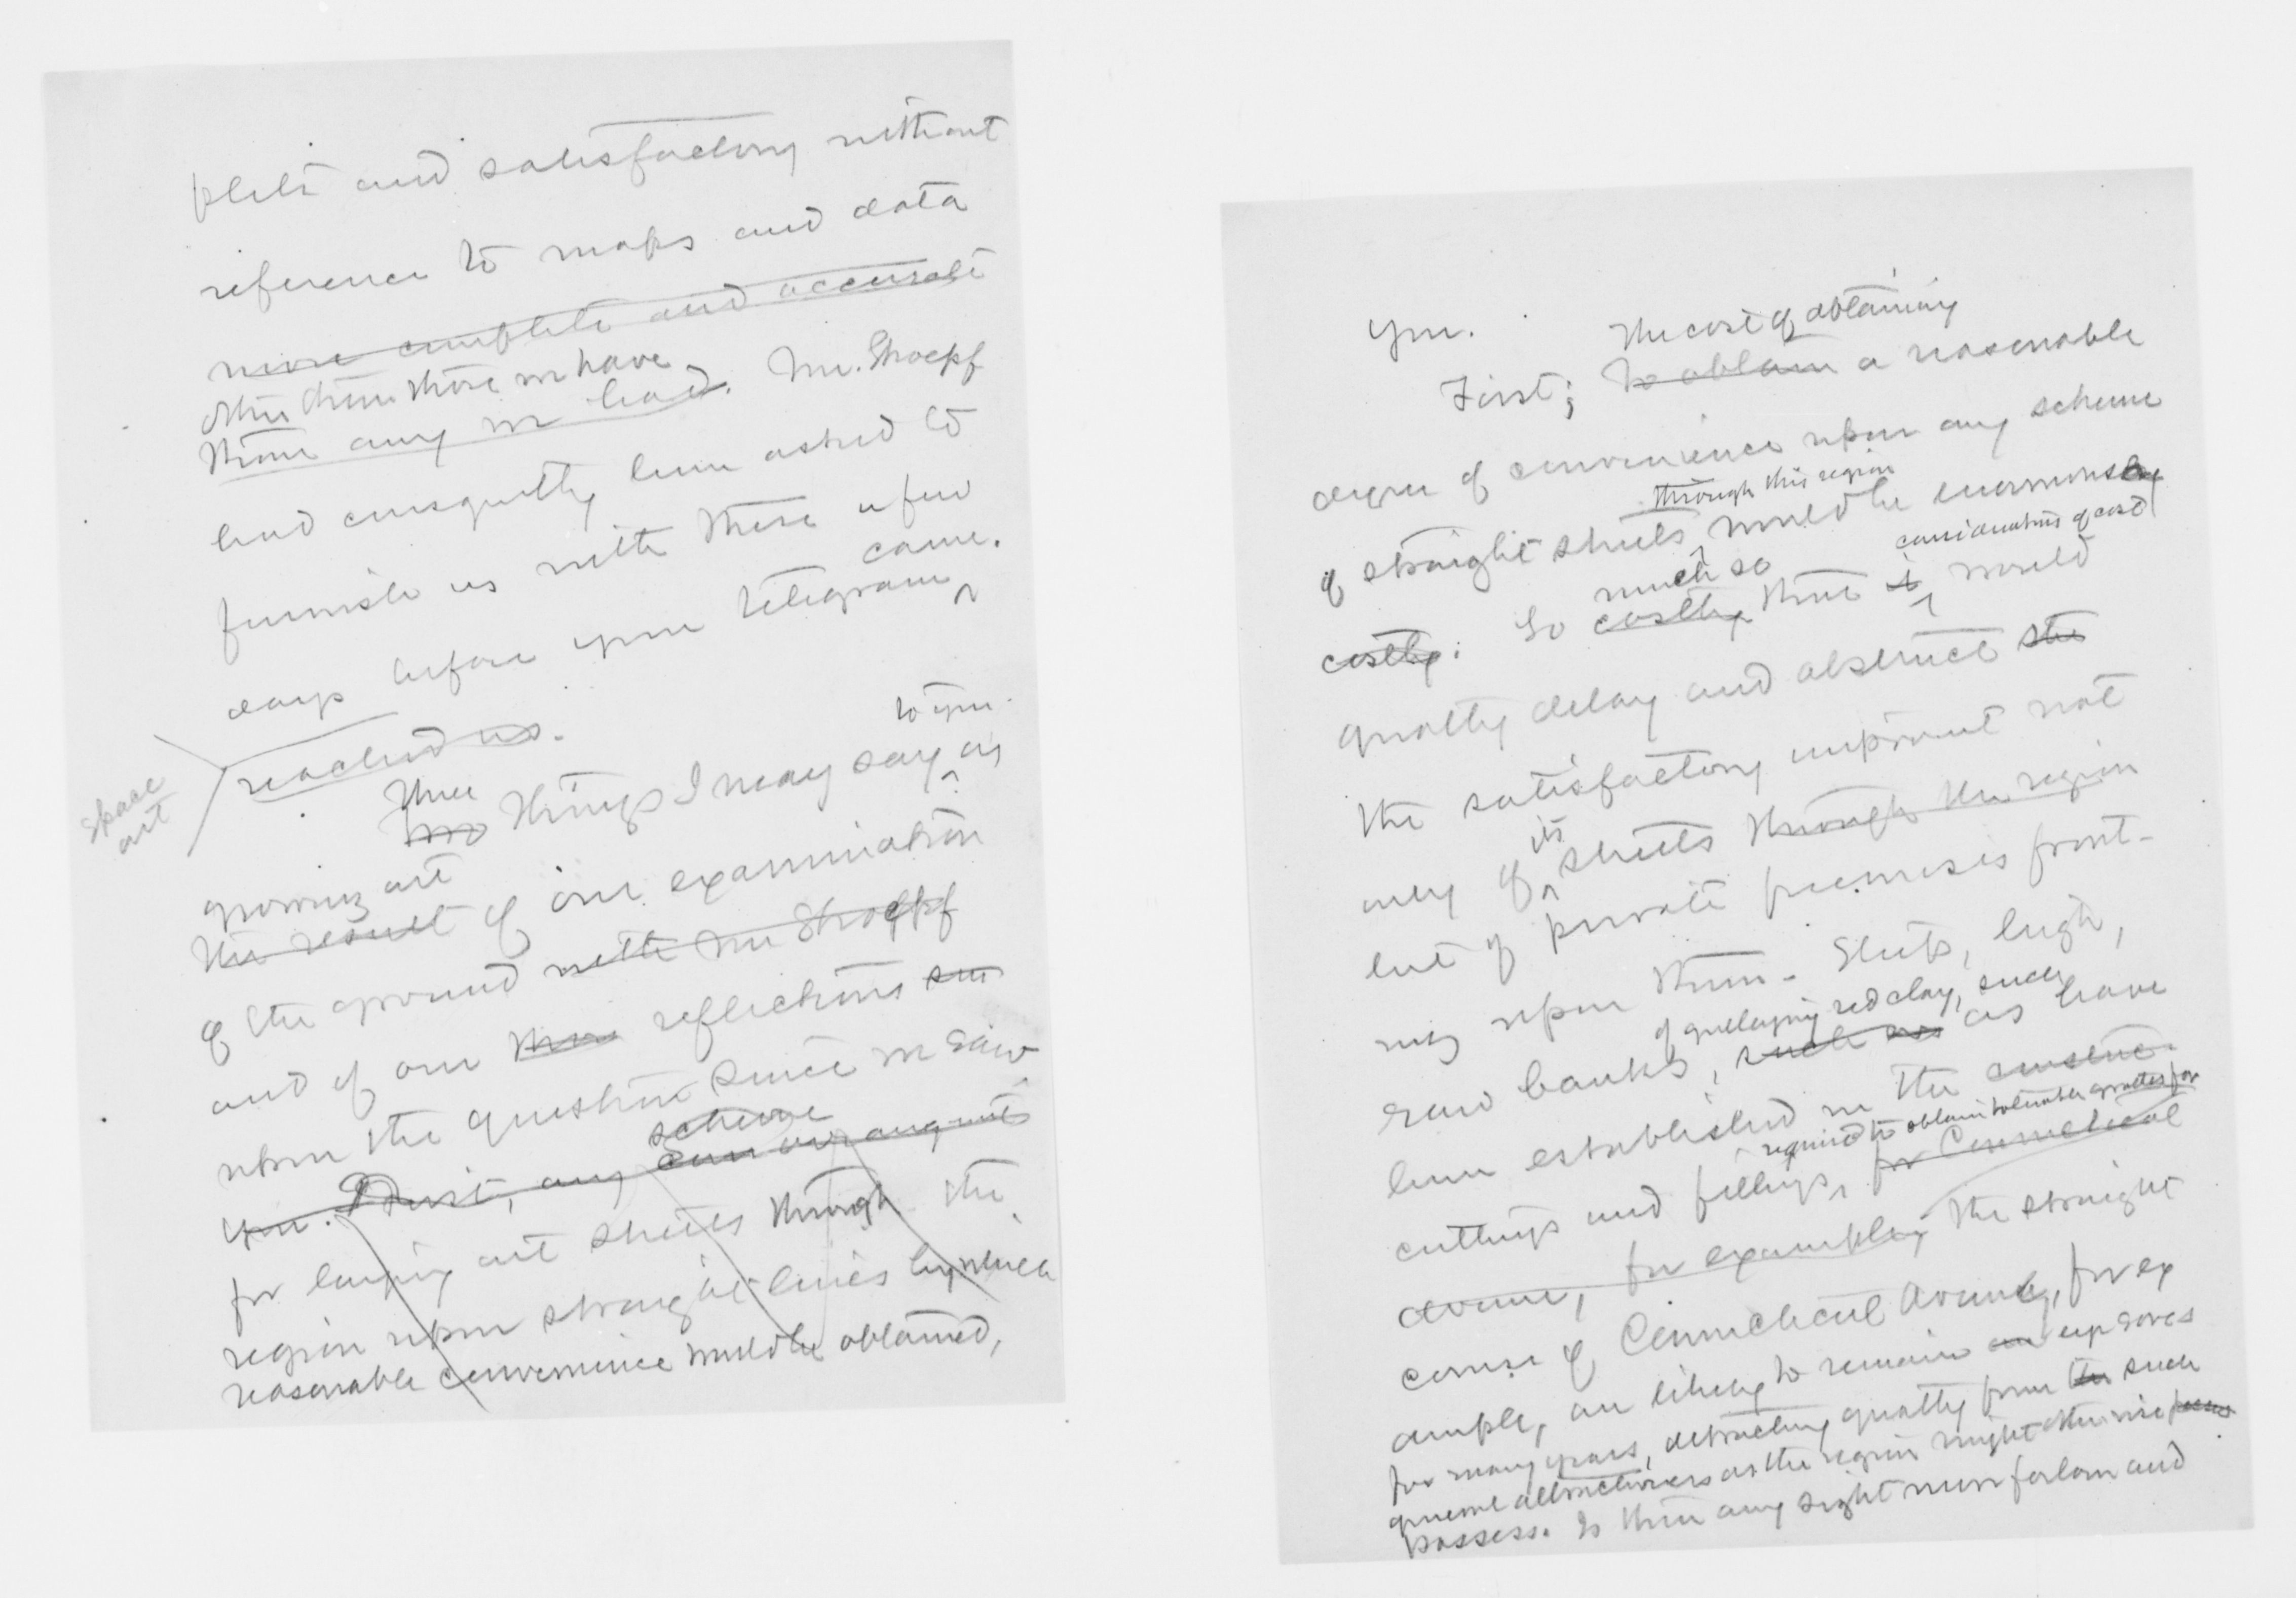 plete and satisfactory without
reference to maps and data
more complete and accurate
other than those we have
than any we had. Mr. Shoepf
had consequently been asked to
furnish us with these a few
came.
days before your telegram
reached us.
to you
Space
out
Three
Two things I may say as
growing out
the result of our examination
of the ground with Mr Shoepf
and of our reflections
upon the question since we saw
scheme
you. First, any
for laying out streets through the
region upon straight lines by which
reasonable convenience would be obtained,
you.
The cost of obtaining
First; To obtain a reasonable
degree of convenience upon any scheme
through this region
of straight streets would be enormously
much so
considerations of cost
costly. So costly that it would
greatly delay and obstruct the
the satisfactory improvemt not
its
only of streets through the region
but of private premises front-
ing upon them. Steep, high,
of gullying red clay, such
raw banks, such as as have
been established in the
required to obtain tolerable grades for
cuttings and fillings, for Connecticut
avenue, for example, the straight
course of Connecticut Avenue, for ex
ample, are likely to remain an eye sores
for many years, detracting greatly from the such
general attractiveness as the region might otherwise possess
possess. Is there any sight more forlorn and